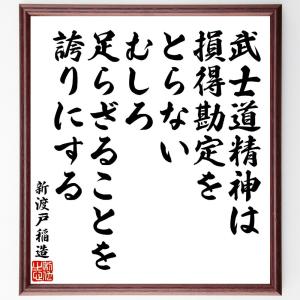 武士道精神は
損得勘定を
とらない
むしろ
足らざることを
誇りにする
新渡戸稲造